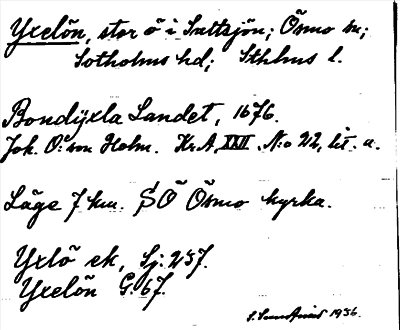 Yxelön, stor ö i Saltsjön; Ösmo sn;
Sotholms hd; Sthlms l.
Bondÿxla Landet, 1676.
Joh. O:son Holm. Kr.A, XXII. N:o 22, lit. a.
Läge 7 km. SÖ Ösmo kyrka.
Yxlö ek, Sj: 257.
Yxelön G: 67.
1936.